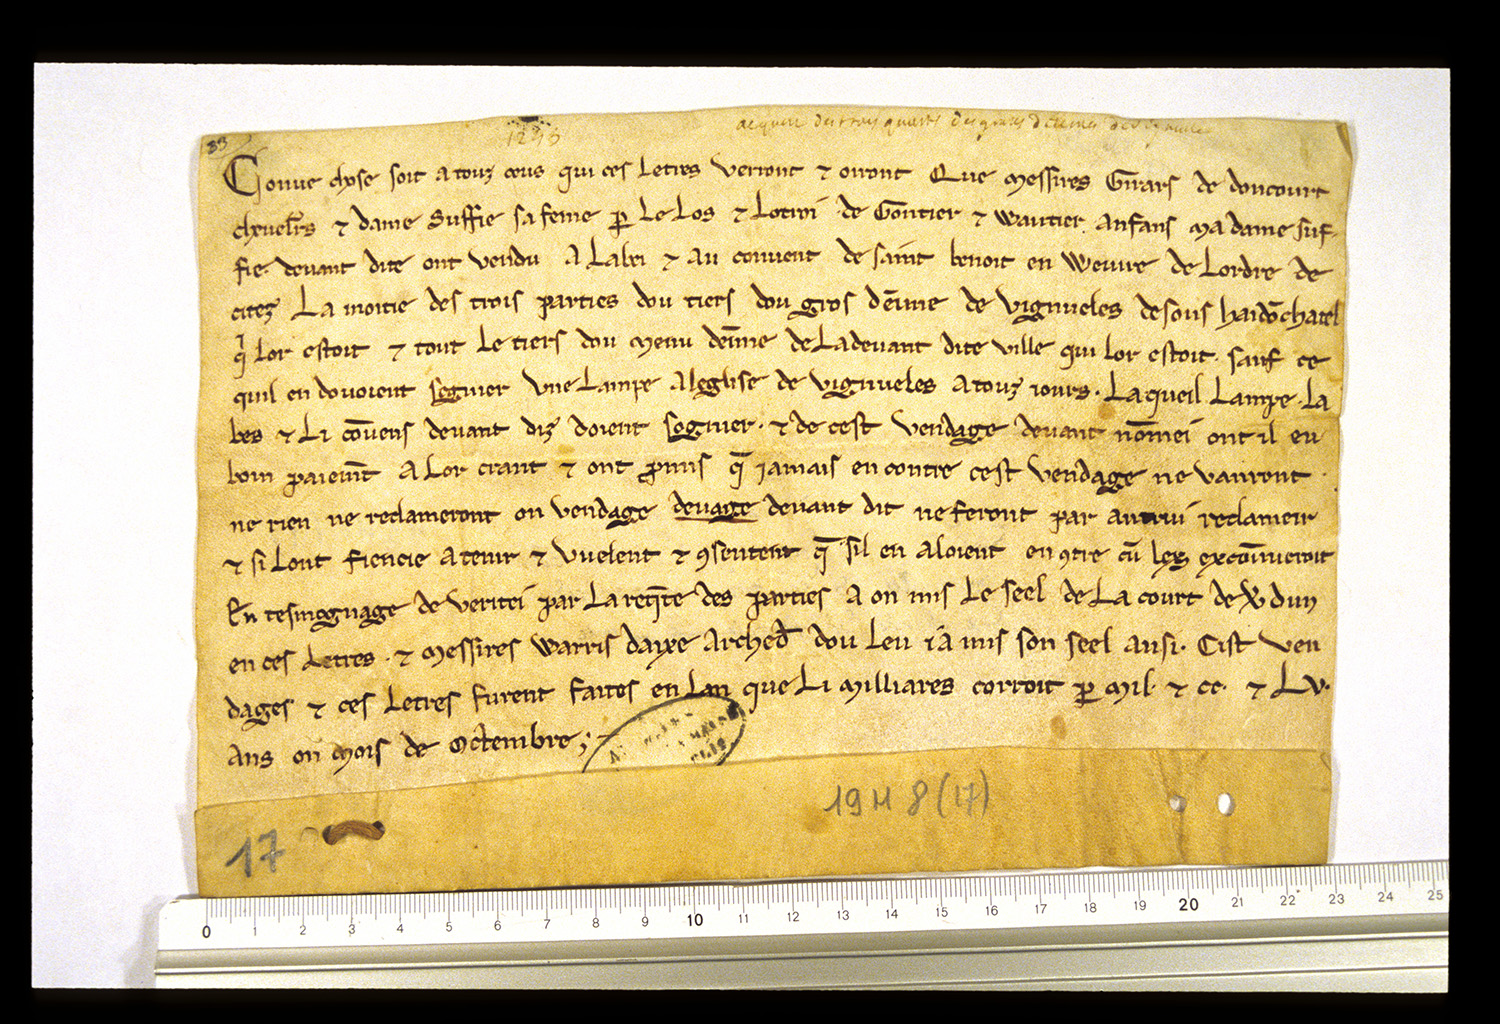 33
1255
acquest des trois quartz des gros
Conue chose soit a touz ceus qui ces Letres verront ⁊ oiront Que Messires Girars de doncourt
cheuelrs ⁊ dame Suffie sa feme ꝑ Le Los ⁊ Lotroi de Gontier ⁊ Wautier anfans ma dame suf-
fie. deuant dite ont vendu A Labei ⁊ au couuent de saint benoit en Weuure de Lordre de
citez La moitie des trois parties dou tiers dou gros deime de vignueles desous haidōchatel
q̍ lor estoit ⁊ tout Le tiers dou menu deime de Ladeuant dite ville qui lor estoit. sauf ce
quil en douoient segnier vne Lampe A leglise de vignueles A touz iours. Laqueil Lampe. La
bes ⁊ Li cōuens deuant diz doient segnier. ⁊ de cest vendage deuant nōmei ont il eu
boin paiemt̄ A Lor crant ⁊ ont ꝓmis q̄ iamais encontre cest vendage ne vanront.
ne rien ne reclameront ou vendage deuage deuant dit ne feront par autrui reclameir
⁊ si Lont fiencie A tenir ⁊ vuelent ⁊ ꝯsentent q̄ sil en aloient en ꝯtre cū Les excōmueroit
En tesmognage de veritei par La req̄te des parties A on mis Le seel de La court de Vdun
en ces Letres. ⁊ Messires Warris daixe Arched̄ dou Leu i a mis son seel ausi. Cist ven
dages ⁊ ces Letres furent faites en Lan que Li Milliares corroit ꝑ Mil. ⁊ cc. ⁊ Lv.
Ans on Mois de Octembre;
19 H 8 (17)
17
0 1 2 3 4 5 6 7 8 9 10 11 12 13 14 15 16 17 18 19 20 21 22 23 24 25